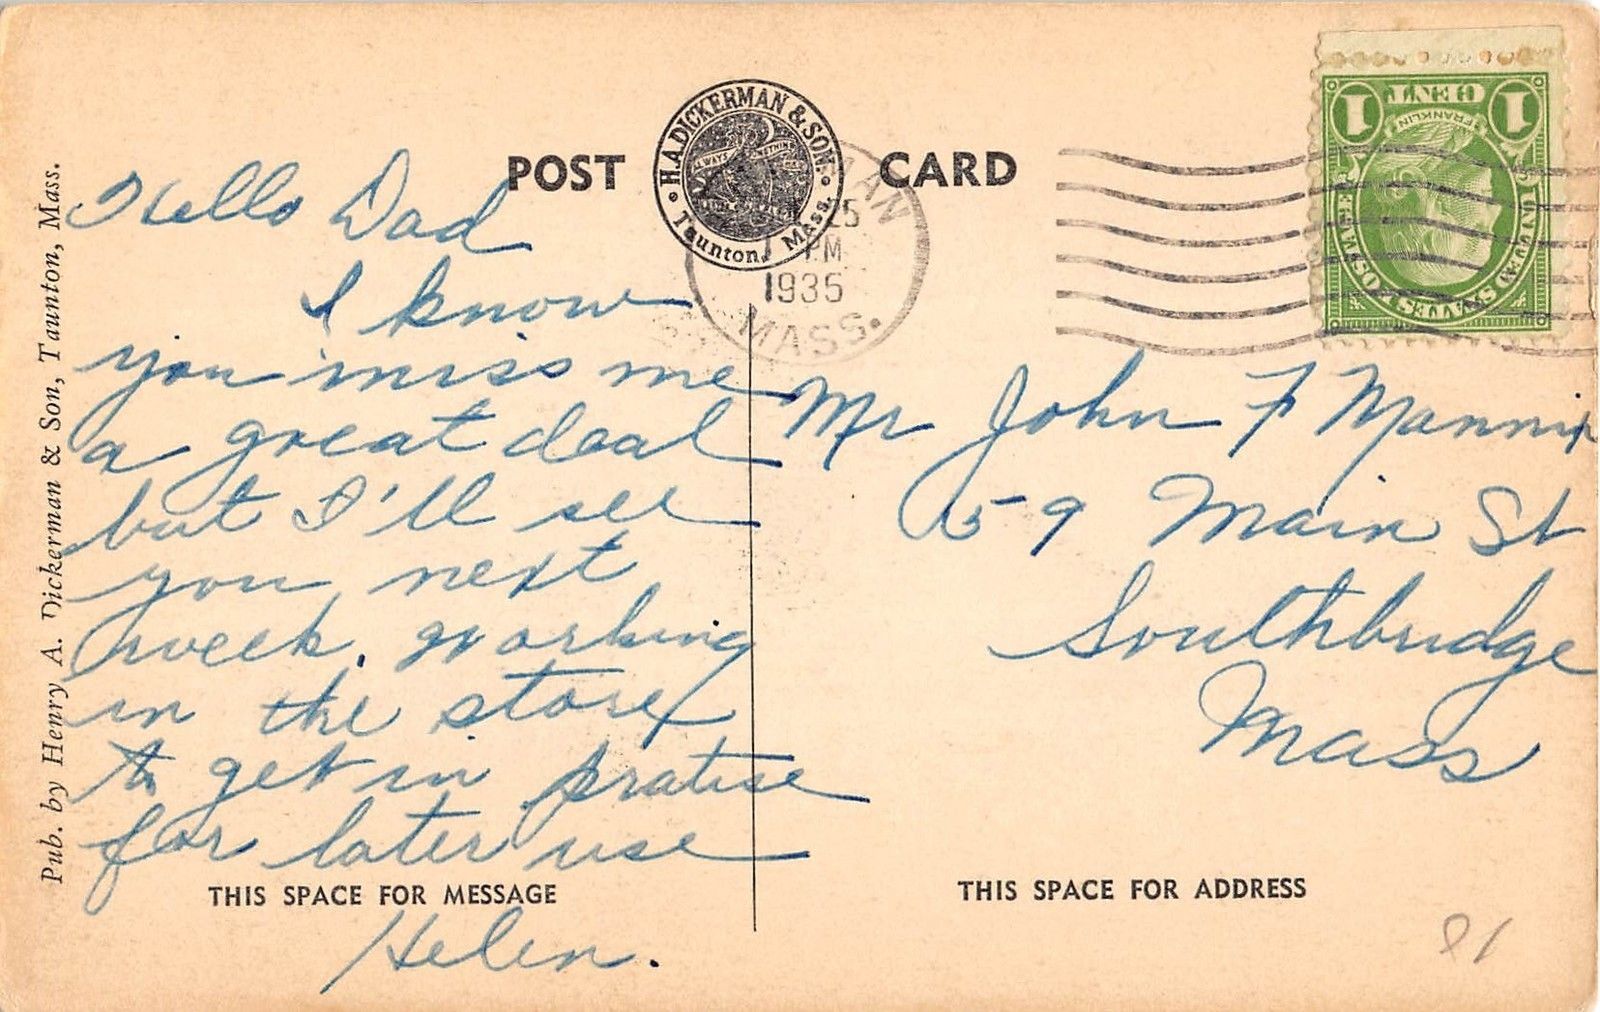 Pub. by Henry A. Dickerman & Son, Taunton, Mass.
POST CARD
H.A. DICKERMAN & SON.
ALWAYS SOMETHING
Taunton, Mass.
25
PM
1935
MASS.
1 CENT 1
FRANKLIN
UNITED STATES POSTAGE
Hello Dad
I know
you miss me
a great deal
but I'll see
you next
week. Working
in the store
to get in pratise
for later use
THIS SPACE FOR MESSAGE
Helen.
Mr John F Mannin
59 Main St
Southbridge
Mass
THIS SPACE FOR ADDRESS